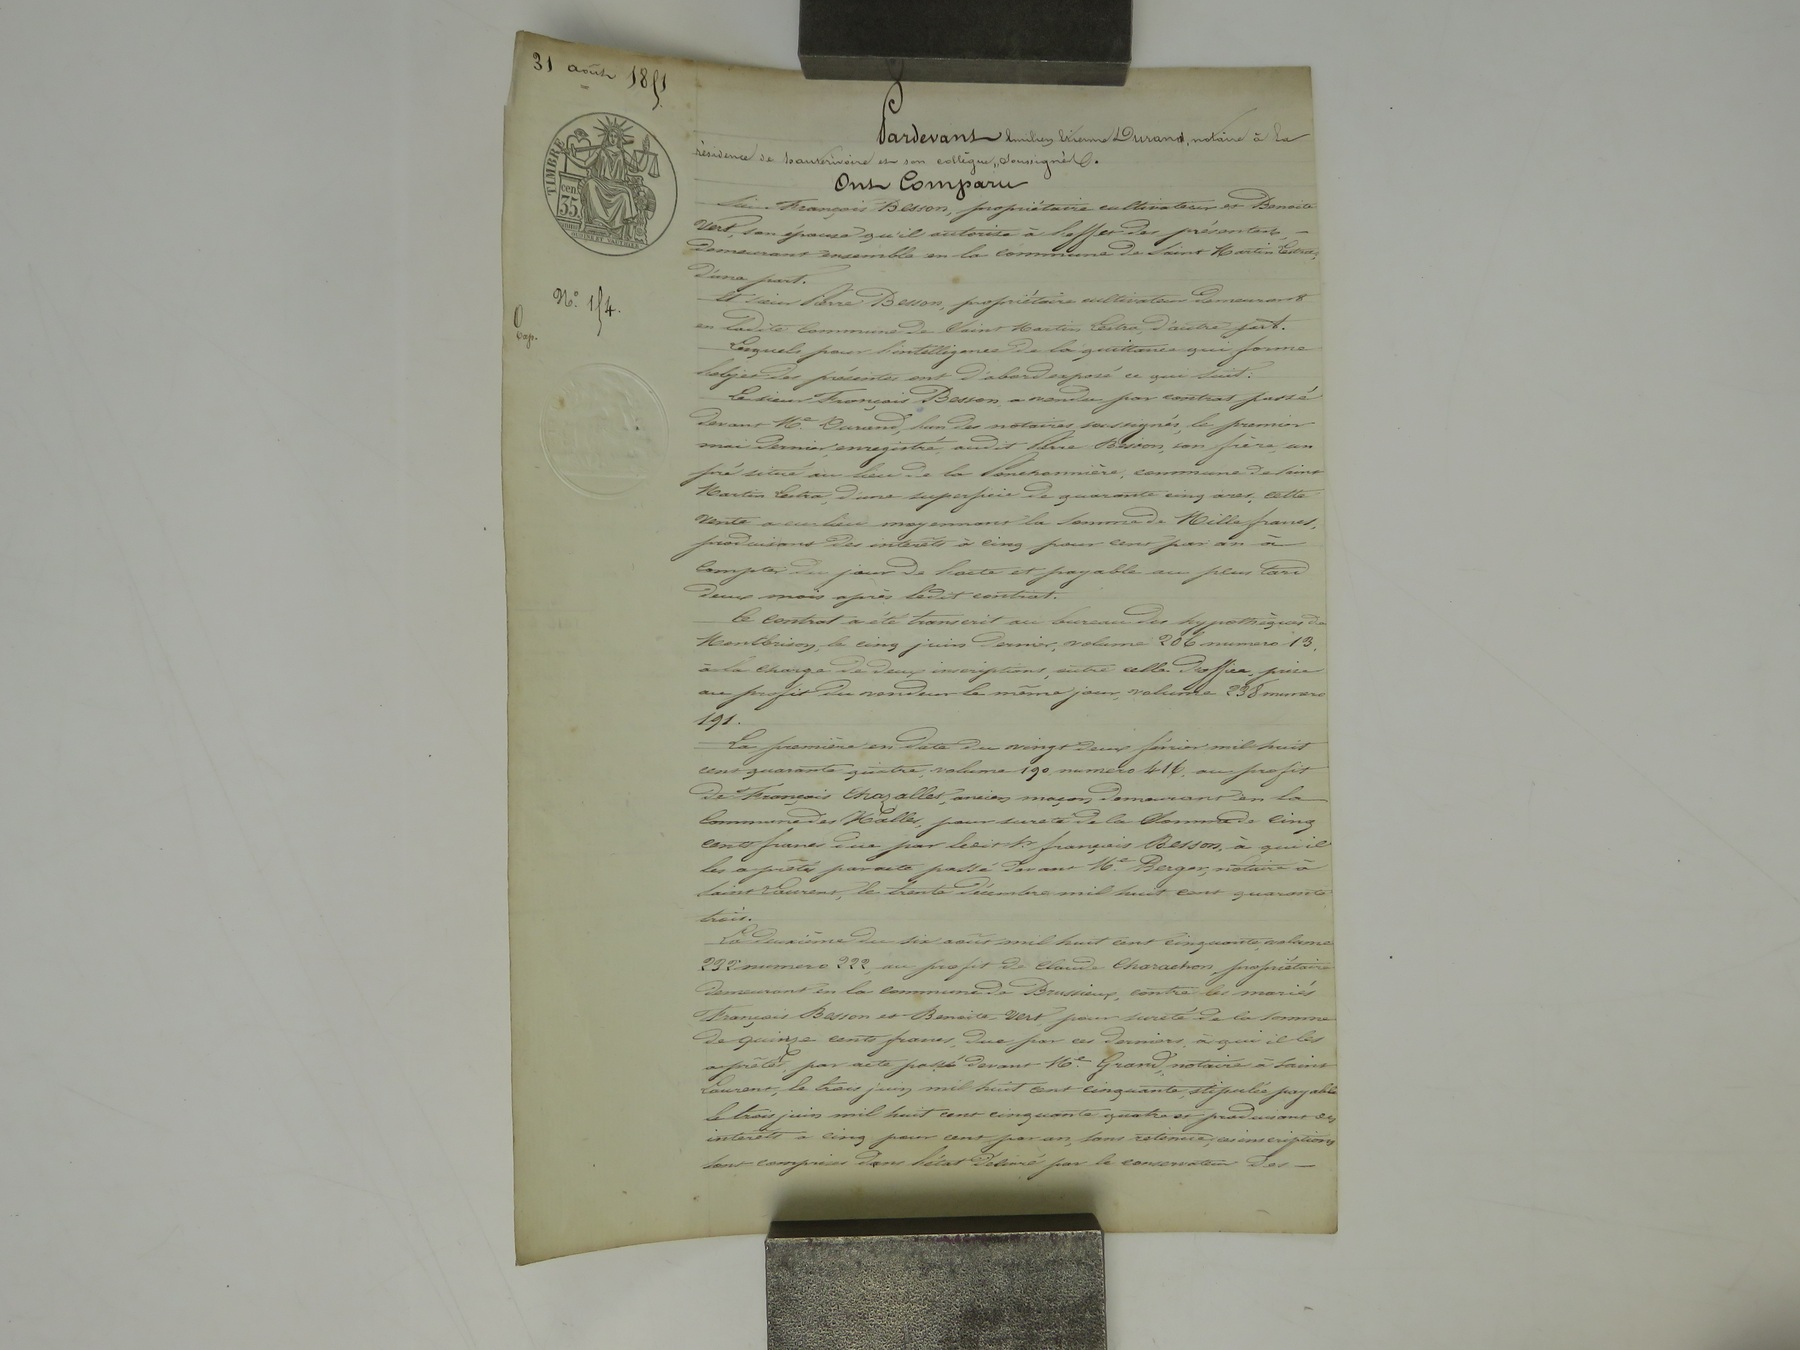 31 août 1851
Pardevant Emilien Etienne Durand, notaire à la
TIMBRE
résidence de et son collègue, soussignés.
Ont Comparu
cen
35
Sieur François Besson, propriétaire cultivateur et Benoite
Vert, son épouse qu'il autorise à l'effet des présentes, —
demeurant ensemble en la commune de Saint Martin Lestra,
d'une part.
N° 154.
Et sieur Pierre Besson, propriétaire cultivateur demeurant
Cop.
en ladite commune de Saint Martin Lestra, d'autre part.
Lesquels pour l'intelligence de la quittance qui forme
l'objet des présentes ont d'abord exposé ce qui suit:
Le sieur François Besson a vendu par contrat passé
devant Me. Durand, l'un des notaires soussignés, le premier
mai dernier, enregistré, audit Pierre Besson, son frère, un
pré situé au lieu de la commune de Saint
Martin Lestra, d'une superficie de quarante cinq ares, cette
vente a eu lieu moyennant la somme de Mille francs,
produisant des intérêts à cinq pour cent par an à
compter du jour de l'acte et payable au plus tard
deux mois après ledit contrat.
Ce contrat a été transcrit au bureau des hypothèques de
Montbrison, le cinq juin dernier, volume 206 numéro 13,
à la charge de deux inscriptions, outre celle d'office, prise
au profit du vendeur le même jour, volume 238 numéro
191.
La première en date du vingt deux février mil huit
cent quarante quatre, volume 190 numéro 416, au profit
de François Chazallet, ancien maçon, demeurant en la
Commune des Halles, pour sureté de la Somme de Cinq
cents francs due par ledit Sr françois Besson, à qui il
les a prêtés par acte passé devant Me. Berger, notaire à
Saint Laurent, le trente décembre mil huit cent quarante
trois.
La deuxième du six août mil huit cent cinquante, volume
232 numéro 222, au profit de Claude Charachon, propriétaire
demeurant en la commune de Brussieux, contre les mariés
François Besson et Benoite Vert, pour sureté de la somme
de quinze cents francs, due par ces derniers, à qui il les
a prêtés, par acte passé devant Me. Grand, notaire à Saint
Laurent, le trois juin mil huit cent cinquante, stipulée payable
le trois juin mil huit cent cinquante quatre et produisant des
intérêts à cinq pour cent par an, sans retenue, ces inscriptions
sont comprises dans l'état délivré par le conservateur des —